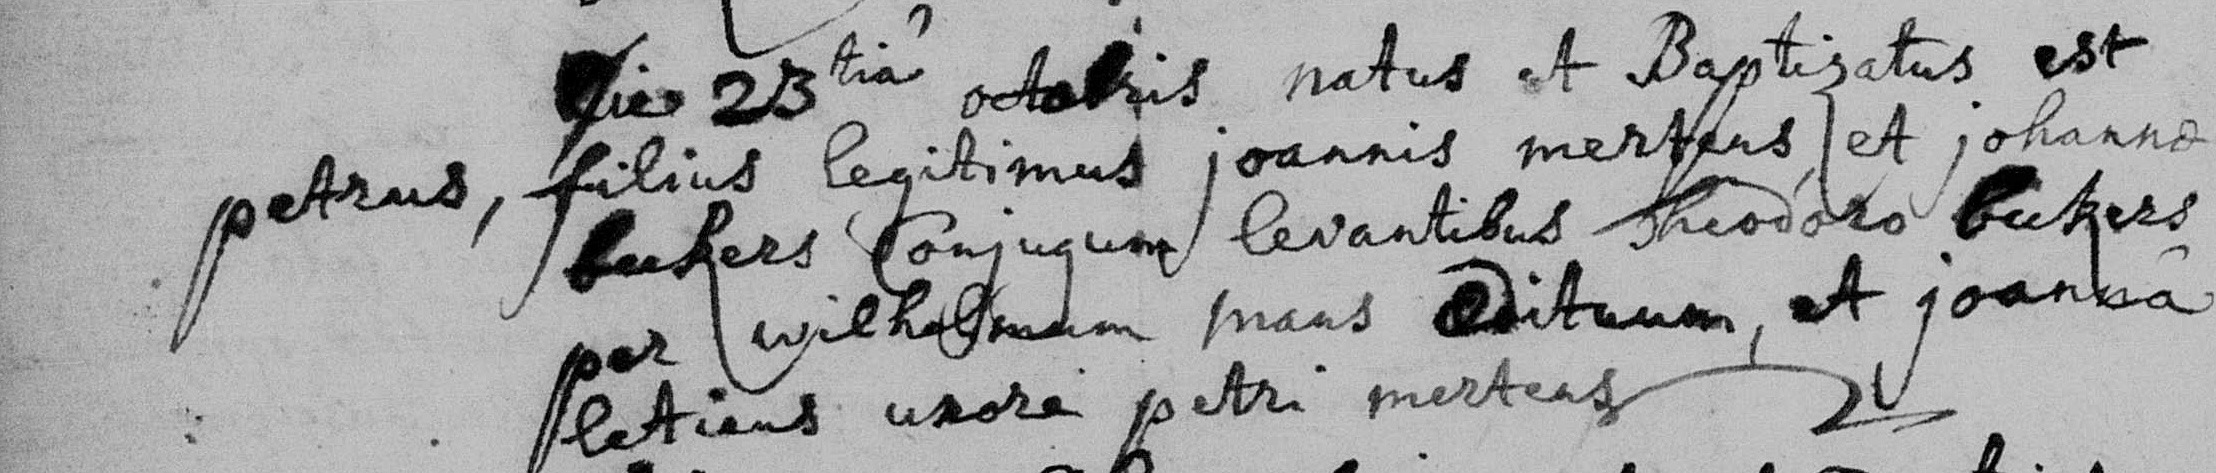 Die 23tia octobris natus et Baptizatus est
petrus, filius legitimus joannis mertens, et johannæ
bukers Conjugum levantibus theodoro bukers
per wilhelmum maus ædituum, et joannâ
letiens uxore petri mertens